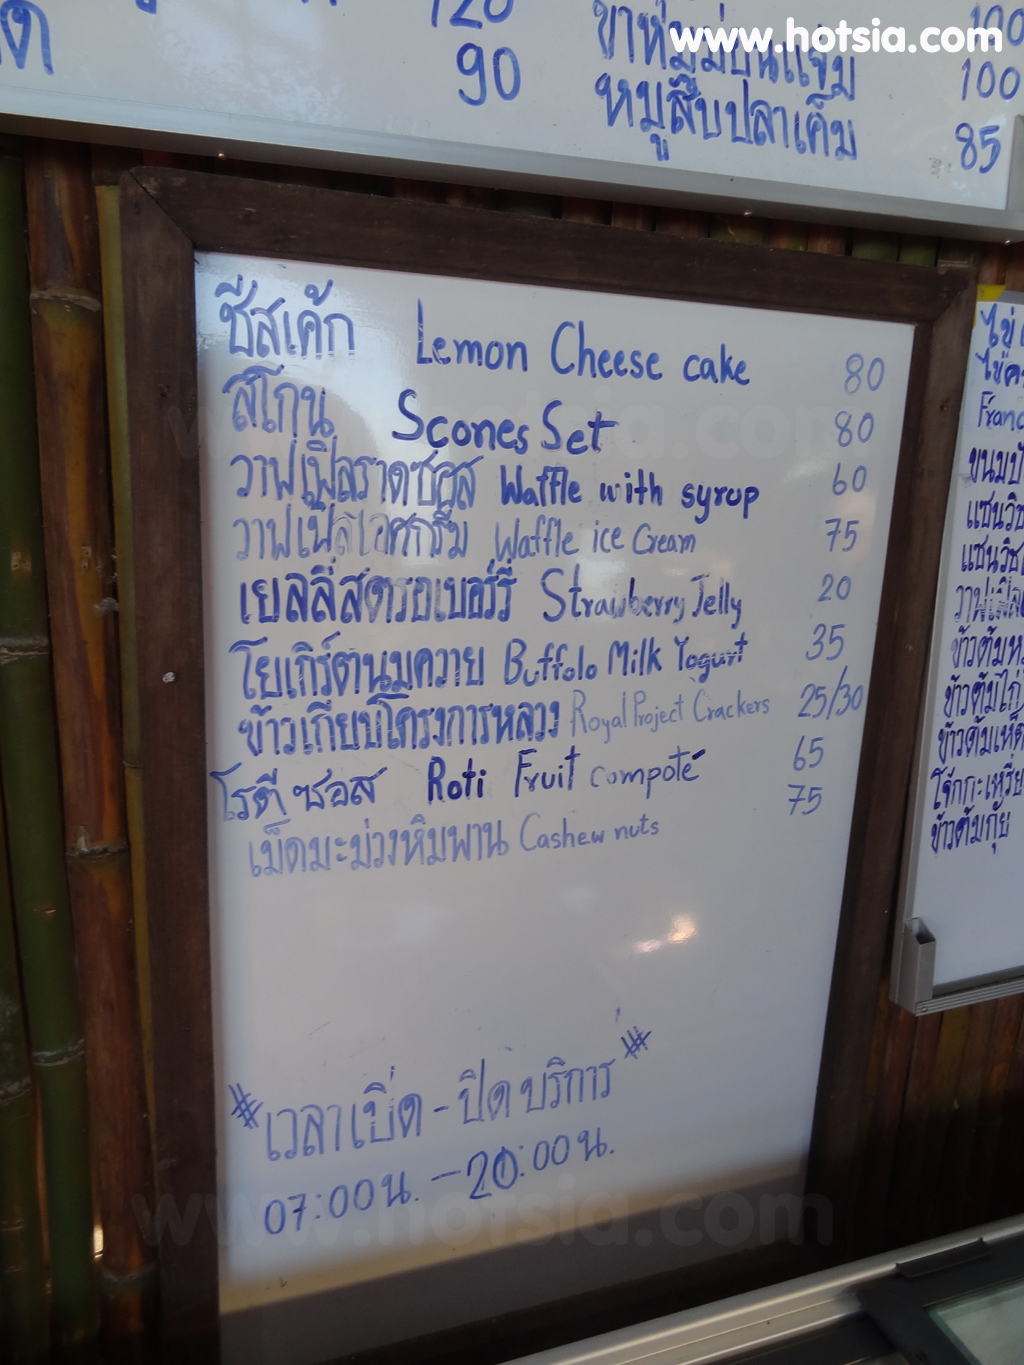 www.hotsia.com
120
90
100
ขาหมูหมั่นแจ่ม 100
หมูสับปลาเค็ม 85
ชีสเค้ก Lemon Cheese cake 80
สโกน Scones Set 80
วาฟเฟิลราดซอส Waffle with syrup 60
วาฟเฟิลไอศกรีม Waffle ice Cream 75
เยลลี่สตรอเบอร์รี่ Strawberry Jelly 20
โยเกิร์ตนมควาย Buffolo Milk Yogurt 35
ข้าวเกียบโครงการหลวง Royal Project Crackers 25/30
โรตี ซอส Roti Fruit compoté 65
เม็ดมะม่วงหิมพาน Cashew nuts 75
เวลาเปิด - ปิด บริการ
07:00 น. - 20:00 น.
ไข่
Franc
แซนวิช
แซนวิช
ข้าวต้ม
ข้าวต้มไก่
ข้าวต้มเห็ด
โจ๊กกะเหรี่ย
ข้าวต้มกุ้ย